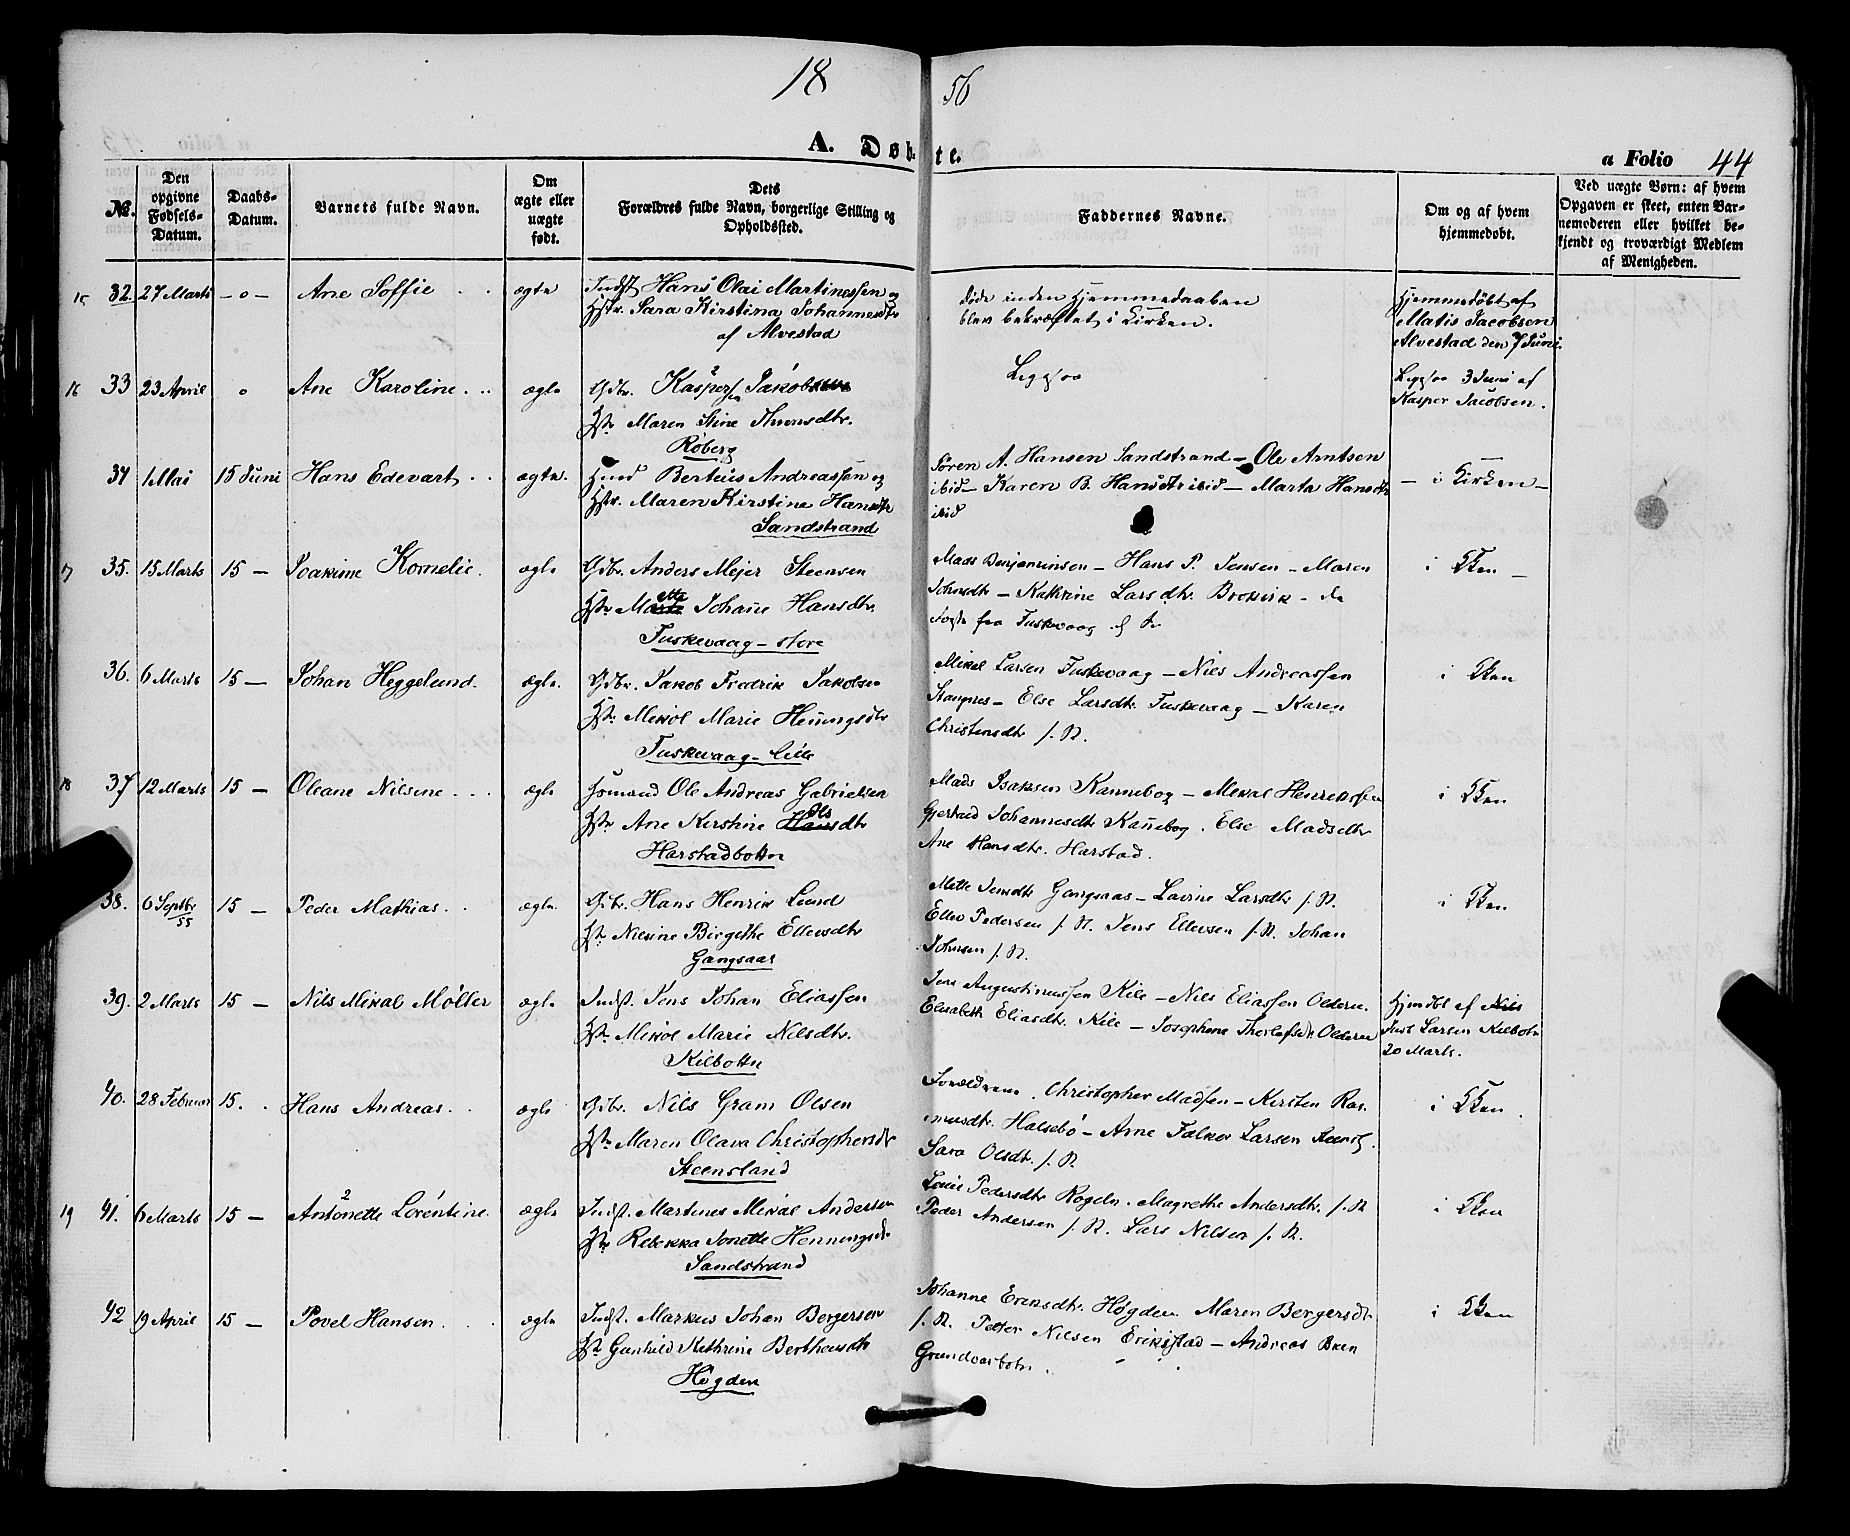 18 56
A. Døbte.
a Folio 44
No. | Den opgivne Fødsels-Datum. | Daabs-Datum. | Barnets fulde Navn. | Om ægte eller uægte født. | Dets Forældres fulde Navn, borgerlige Stilling og Opholdssted. | Faddernes Navne. | Om og af hvem hjemmedøbt. | Ved uægte Børn: af hvem Opgaven er skeet, enten Barnemoderen eller hvilket bekjendt og troværdigt Medlem af Menigheden.
15 32. 27 Marts – o – Ane Soffie . . ægte Indst Hans Olai Martinessen og
Hstr. Sara Kirstina Johannesdtr
af Alvestad
døde inden Hjemmedaaben
blev bekræftet i Kirken.
Hjemmedøbt af
Matis Jacobsen
Alvestad den 7 Juni.
16 33 23 April o Ane Karoline . . ægte Gdbr. Kasper Jakobsen
Hstr Maren Stine
Røberg
Ligesaa
Ligesaa 3 Juni af
Kasper Jacobsen.
34 1 Mai 15 Juni Hans Edevart . . ægte. Hmd Berteus Andreassen og
Hstr. Maren Kirstine Hansdtr
Sandstrand
Søren A. Hansen Sandstrand – Ole Arntsen
ibid – Karen B. Hansdtr ibid – Marta Hansdtr
ibid
– i Kirken –
17 35. 15 Marts 15 – Joakime Kornelie. ægte Gdbr. Anders Mejer Steensen
Hstr Mette Johane Hansdtr.
Tuskevaag – store
Mads Benjaminsen – Hans P. Jensen – Maren
Johnsdtr – Kathrine Larsdtr. – de
fra Tuskevaag
i Kken –
36. 6 Marts 15 – Johan Heggelund. ægte. Gdbr. Jakob Fredrik Jakobsen
Hstr. Mekol Marie Henningsdtr
Tuskevaag – lille
Mikal Larsen Tuskevaag – Nils Andreassen
Stangnes – Else Larsdtr. Tuskevaag – Karen
Christensdtr s. St.
i Kken
18 37 12 Marts 15 – Oleane Nilsine . . . ægte Ole Andreas Gabrielsen
Hstr Ane Kirstine Olsdtr
Harstadbotn
Mads Isaksen Kannebog – Mekal Henriksen
Gjertrud Johannesdtr Kannebog. Else Madsdtr
Ane Hansdtr. Harstad.
i Kken
38. 6 Septbr/55 15 – Peder Mathias . . ægte. Gdbr. Hans Henrik Lund
Hstr Nilsine Birgithe Ellevsdtr
Gangsaas
Mette Jensdtr Gangsaas – Lavine Larsdtr s. St.
Ellev Pedersen s. St. Jens Ellevsen s. St. Johan
Johnsen s. St.
i Kken
39. 2 Marts 15 – Nils Mikal Møller ægte Indst. Jens Johan Eliassen
Hstr. Mekol Marie Nilsdtr.
Kilbottn
Jens Augustinussen Kile – Nils Eliassen Olderen.
Elisabeth Eliasdtr. Kile – Josephine Thorlefsdtr Olderen
Hjmdbt af Nils
Just Larsen Kilbotn
20 Marts.
40. 28 Februar 15. . Hans Andreas . . ægte Gdbr. Nils Gram Olsen
Hstr. Maren Olava Christophersdtr
Steensland
Forældrene. Christopher Madsen – Kirsten Ras-
musdtr. Halsebø – Arne Falkor Larsen
Sara Olsdtr. s. St.
i Kken .
19 41. 6 Marts 15 – Antonette Lorentine. ægte Indst. Martines Mikal Andersen
Hstr Rebekka Jonette Henningsdtr
Sandstrand
Pedersdtr Rogeln. Magrethe Andersdtr. s. St
Peder Andersen s. St. Lars Nilsen s. St.
i Kken
42 19 April 15 – Povel Hansen . . . ægte Indst. Markus Johan Bergersen
Hstr Gunhild Kathrine Bertheusdtr
Høgden
Johanne Eriksdtr. Høgden Maren Bergersdtr
s. St. Petter Nilsen Erikstad – Andreas
i Kken